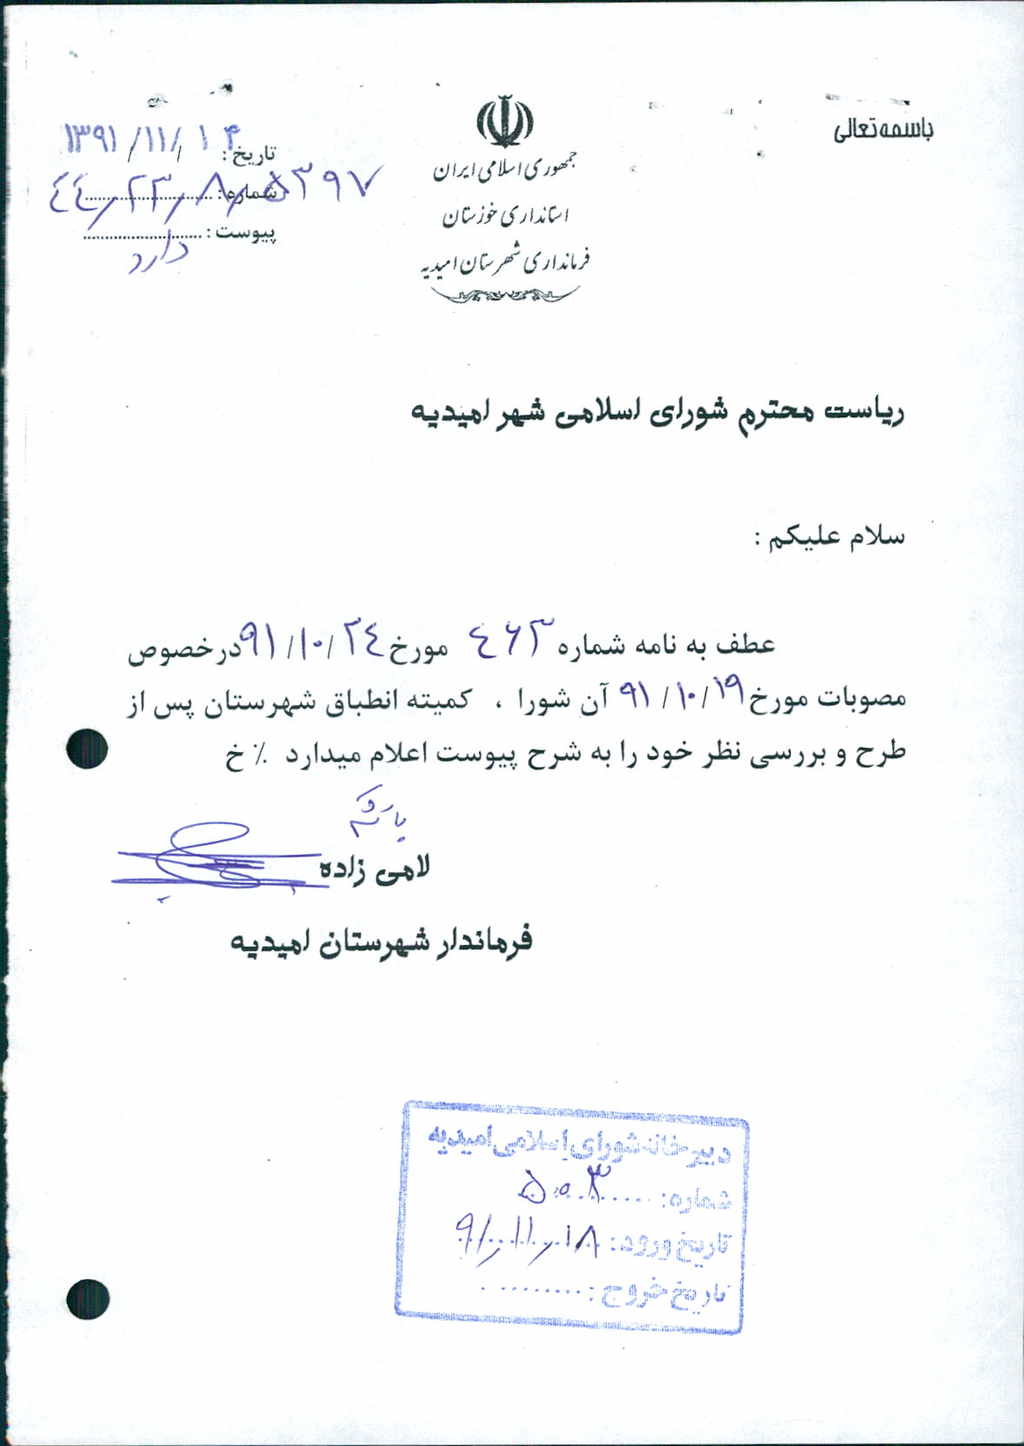 باسمه تعالی
جمهوری اسلامی ایران
استانداری خوزستان
فرمانداری شهرستان امیدیه
تاریخ : ۱۳۹۱/۱۱/۱۴
شماره : ۴۴/۲۳/۸/۵۳۹۷
پیوست : دارد
ریاست محترم شورای اسلامی شهر امیدیه
سلام علیکم :
عطف به نامه شماره ۴۶۳ مورخ ۹۱/۱۰/۲۴ درخصوص
مصوبات مورخ ۹۱/۱۰/۱۹ آن شورا ، کمیته انطباق شهرستان پس از
طرح و بررسی نظر خود را به شرح پیوست اعلام میدارد ٪ خ
لامی زاده
فرماندار شهرستان امیدیه
دبیرخانه شورای اسلامی امیدیه
شماره: ۵۰۳
تاریخ ورود: ۹۱/۱۱/۱۸
تاریخ خروج : ..........